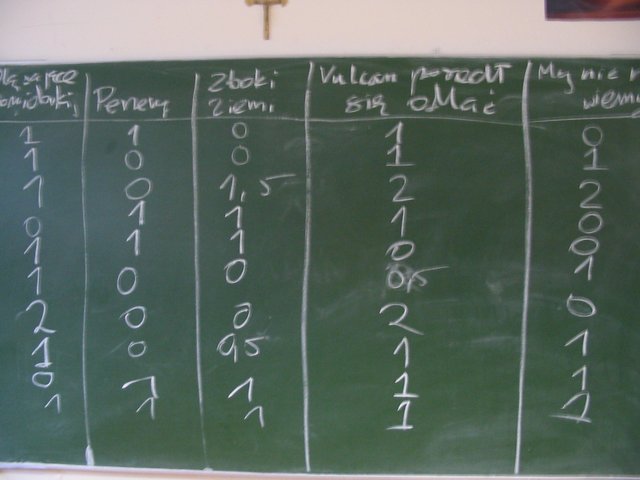 Penery
Zboki
ziemi
Vulcan poradt
się oMać
My nie
1 1 0 1 0
1 0 0 1 1
1 0 1,5 2 2
0 1 1 1 0
1 1 1 0 0
1 0 0 0,5 1
2 0 0 2 0
1 0 0,5 1 1
0 1 1 1 1
1 1 1 1 1